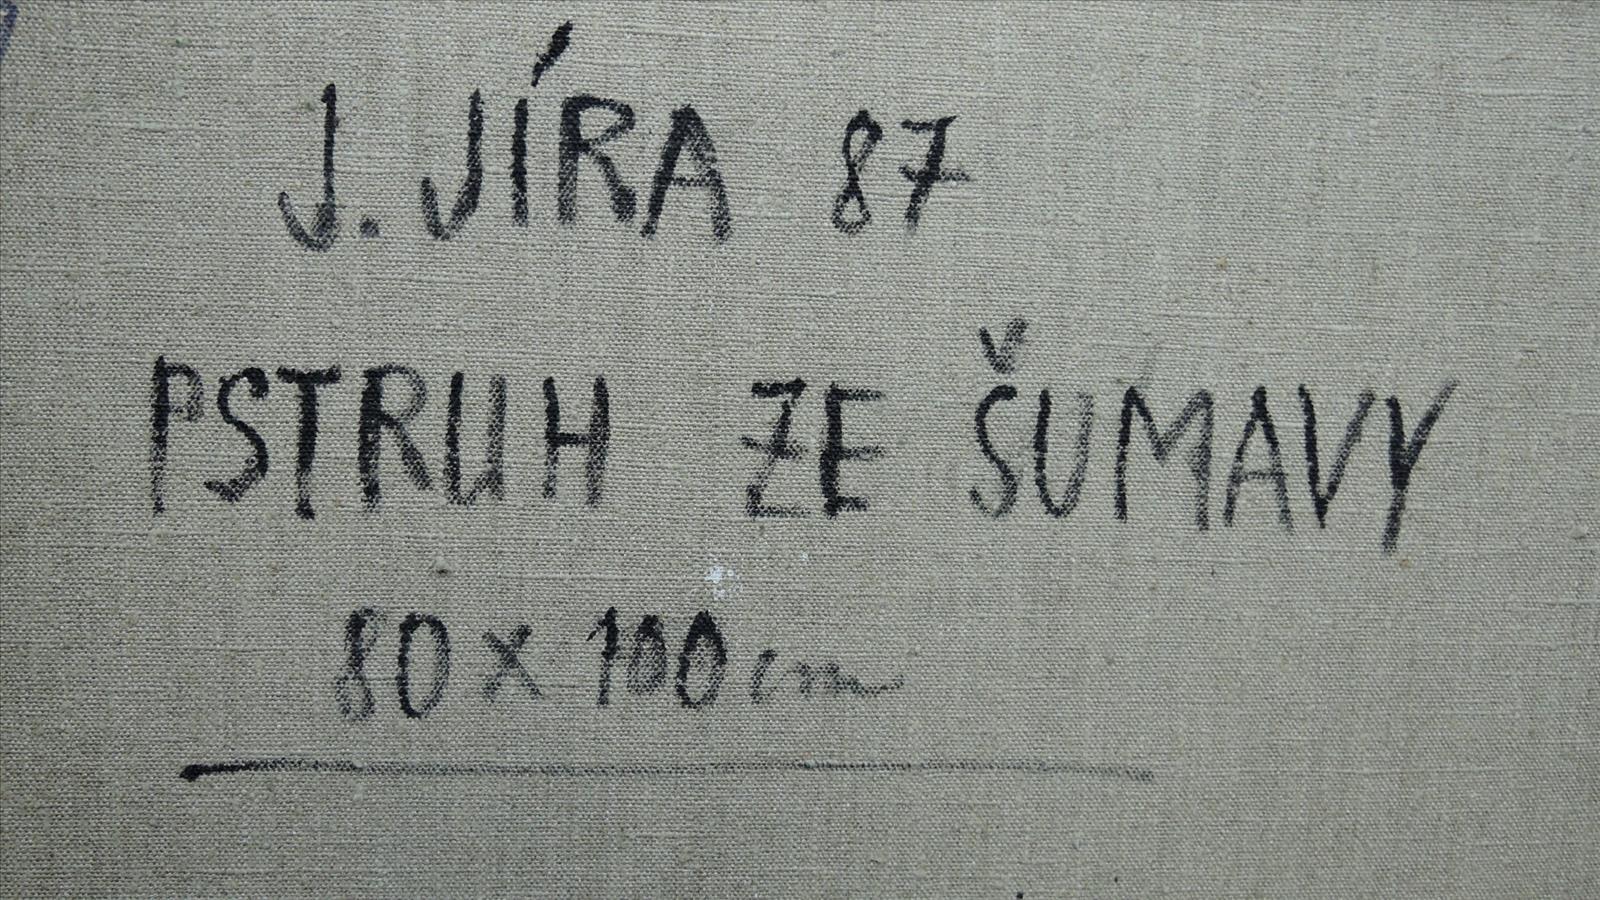 J. JÍRA 87
PSTRUH ZE ŠUMAVY
80 x 100 cm